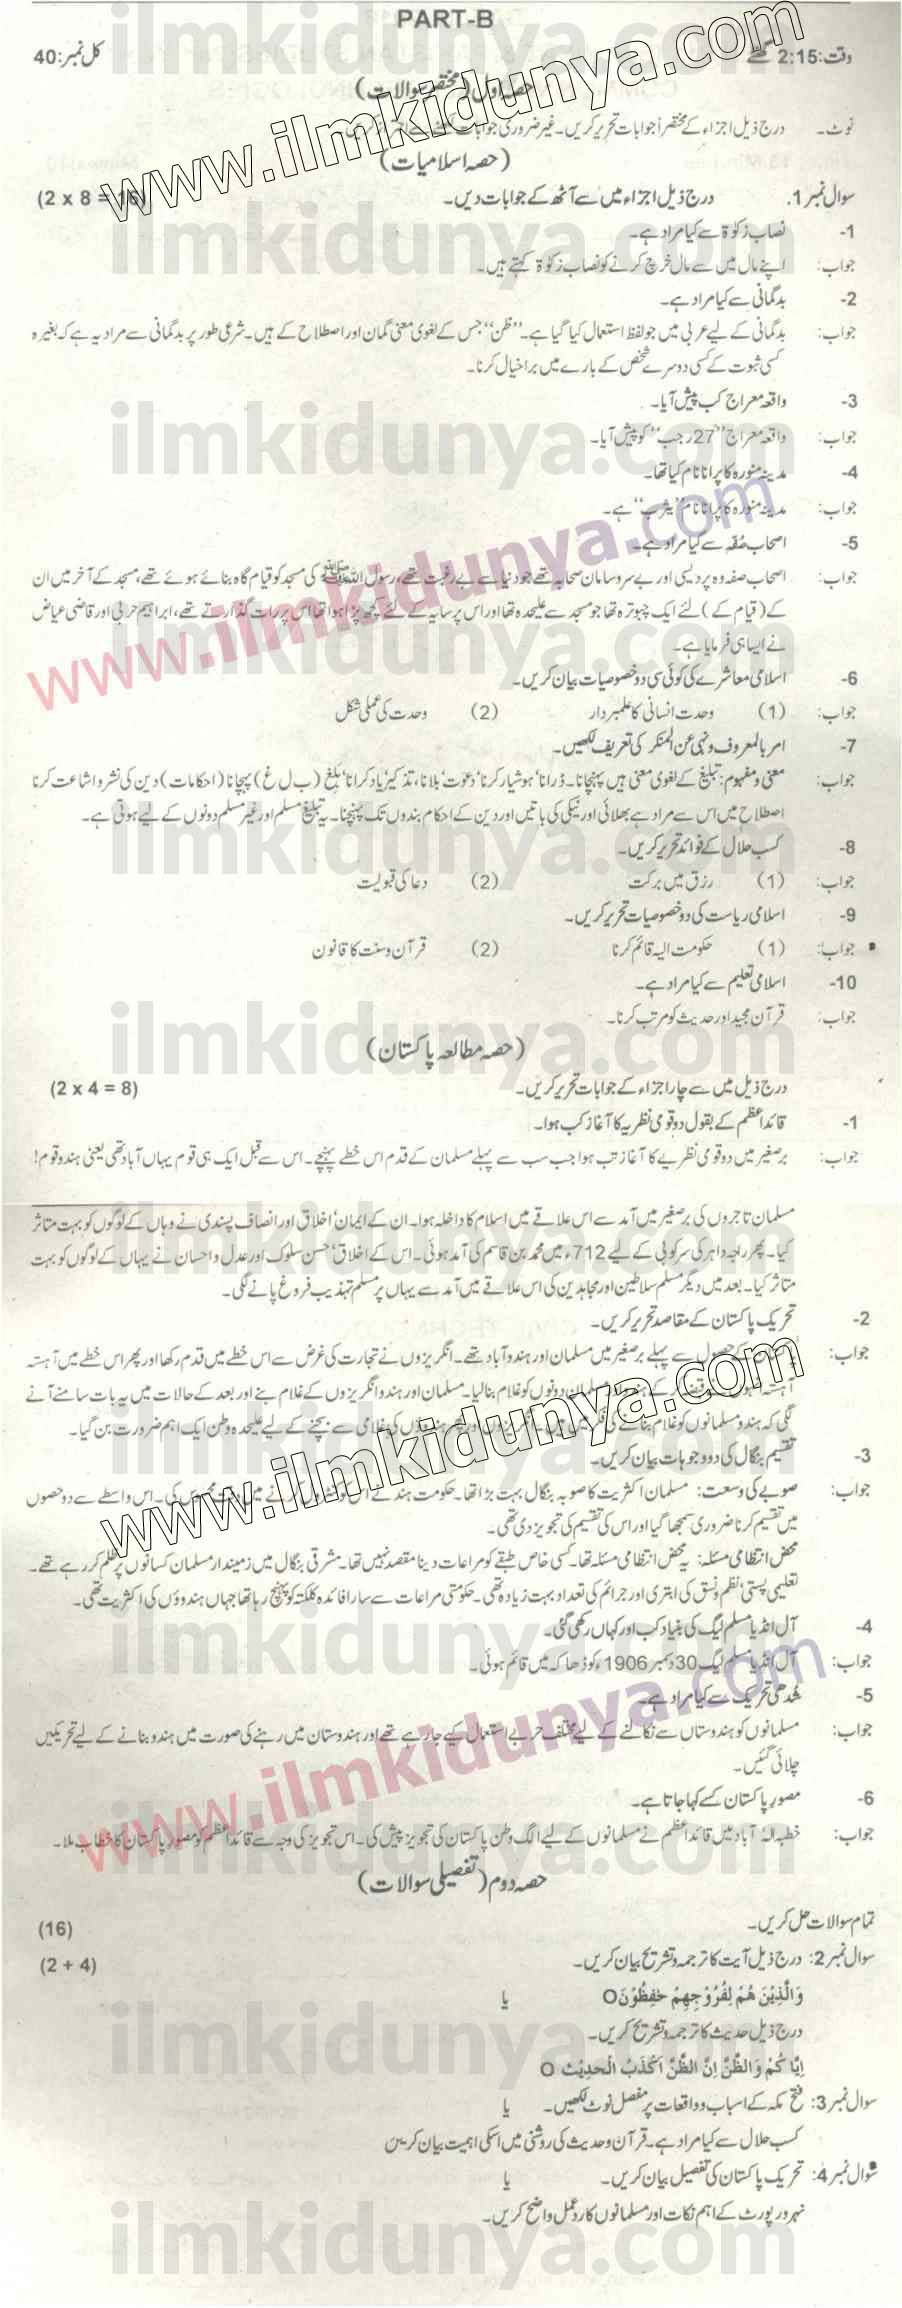 PART-B
وقت:2:15 گھنٹے کل نمبر:40
حصہ اول (مختصر سوالات)
نوٹ۔ درج ذیل اجزاء کے مختصراً جوابات تحریر کریں۔ غیر ضروری جوابات لکھنے سے کریں۔
(حصہ اسلامیات)
سوال نمبر 1. درج ذیل اجزاء میں سے آٹھ کے جوابات دیں۔ (2 x 8 = 16)
1- نصاب زکوٰۃ سے کیا مراد ہے۔
جواب: اپنے مال میں سے مال خرچ کرنے کو نصاب زکوٰۃ کہتے ہیں۔
2- بدگمانی سے کیا مراد ہے۔
جواب: بدگمانی کے لیے عربی میں جو لفظ استعمال کیا گیا ہے۔ ''ظن'' جس کے لغوی معنی گمان اور اصطلاح کے ہیں۔ شرعی طور پر بدگمانی سے مراد یہ ہے کہ بغیرہ
کسی ثبوت کے کسی دوسرے شخص کے بارے میں برا خیال کرنا۔
3- واقعہ معراج کب پیش آیا۔
جواب: واقعہ معراج ''27 رجب'' کو پیش آیا۔
4- مدینہ منورہ کا پرانا نام کیا تھا۔
جواب: مدینہ منورہ کا پرانا نام ''یثرب'' ہے۔
5- اصحاب صُفّہ سے کیا مراد ہے۔
جواب: اصحاب صفہ وہ پردیسی اور بے سروسامان صحابہ تھے جو دنیا سے بے رغبت تھے، رسول اللہ ﷺ کی مسجد کو قیام گاہ بنائے ہوئے تھے، مسجد کے آخر میں ان
کے (قیام کے) لئے ایک چبوترہ تھا جو مسجد سے علیحدہ تھا اور اس پر سایہ کے لئے کچھ پڑا ہوا تھا اس پر رات گذارتے تھے، ابراہیم حربی اور قاضی عیاض
نے ایسا ہی فرمایا ہے۔
6- اسلامی معاشرے کی کوئی سی دو خصوصیات بیان کریں۔
جواب: (1) وحدت انسانی کا علمبردار (2) وحدت کی عملی شکل
7- امر بالمعروف و نہی عن المنکر کی تعریف لکھیں۔
جواب: معنی و مفہوم: تبلیغ کے لغوی معنی ہیں پہنچانا۔ ڈرانا' ہوشیار کرنا' دعوت' بلانا، تذکیر' یاد کرانا' بلغ (ب ل غ) پہچانا (احکامات) دین کی نشرو اشاعت کرنا
اصطلاح میں اس سے مراد ہے بھلائی اور نیکی کی باتیں اور دین کے احکام بندوں تک پہنچنا۔ یہ تبلیغ مسلم اور غیر مسلم دونوں کے لیے ہوتی ہے۔
8- کسب حلال کے فوائد تحریر کریں۔
جواب: (1) رزق میں برکت (2) دعا کی قبولیت
9- اسلامی ریاست کی دو خصوصیات تحریر کریں۔
جواب: (1) حکومت الیہ قائم کرنا (2) قرآن و سنت کا قانون
10- اسلامی تعلیم سے کیا مراد ہے۔
جواب: قرآن مجید اور حدیث کو مرتب کرنا۔
(حصہ مطالعہ پاکستان)
درج ذیل میں سے چار اجزاء کے جوابات تحریر کریں۔ (2 x 4 = 8)
1- قائداعظم کے بقول دو قومی نظریہ کا آغاز کب ہوا۔
جواب: برصغیر میں دو قومی نظریے کا آغاز تب ہوا جب سب سے پہلے مسلمان کے قدم اس خطے پہنچے۔ اس سے قبل ایک ہی قوم یہاں آباد تھی یعنی ہندو قوم!
مسلمان تاجروں کی برصغیر میں آمد سے اس علاقے میں اسلام کا داخلہ ہوا۔ ان کے ایمان' اخلاق اور انصاف پسندی نے وہاں کے لوگوں کو بہت متاثر
کیا۔ پھر راجہ داہر کی سرکوبی کے لیے 712ء میں محمد بن قاسم کی آمد ہوئی۔ اس کے اخلاق' حسن سلوک اور عدل و احسان نے یہاں کے لوگوں کو بہت
متاثر کیا۔ بعد میں دیگر مسلم سلاطین اور مجاہدین کی اس علاقے میں آمد سے یہاں پر مسلم تہذیب فروغ پانے لگی۔
2- تحریک پاکستان کے مقاصد تحریر کریں۔
جواب: کے حصول سے پہلے برصغیر میں مسلمان اور ہندو آباد تھے۔ انگریزوں نے تجارت کی غرض سے اس خطے میں قدم رکھا اور پھر اس خطے میں آہستہ
آہستہ کے مسلمان دونوں کو غلام بنا لیا۔ مسلمان اور ہندو انگریزوں کے غلام بنے اور بعد کے حالات میں یہ بات سامنے آنے
لگی کہ ہندو مسلمانوں کو غلام بنانے کی فکر میں ہیں۔ انگریزوں اور پھر ہندوؤں کی غلامی سے بچنے کے لیے علیحدہ وطن ایک اہم ضرورت بن گیا۔
3- تقسیم بنگال کی دو وجوہات بیان کریں۔
جواب: صوبے کی وسعت: مسلمان اکثریت کا صوبہ بنگال بہت بڑا تھا۔ حکومت ہند نے اس کو کنٹرول کرنے میں محسوس کی۔ اس واسطے سے دو حصوں
میں تقسیم کرنا ضروری سمجھا گیا اور اس کی تقسیم کی تجویز دی تھی۔
محض انتظامی مسئلہ: یہ محض انتظامی مسئلہ تھا۔ کسی خاص طبقے کو مراعات دینا مقصد نہیں تھا۔ مشرقی بنگال میں زمیندار مسلمان کسانوں پر ظلم کر رہے تھے۔
تعلیمی پستی، نظم و نسق کی ابتری اور جرائم کی تعداد بہت زیادہ تھی۔ حکومتی مراعات سے سارا فائدہ کلکتہ کو پہنچ رہا تھا جہاں ہندوؤں کی اکثریت تھی۔
4- آل انڈیا مسلم لیگ کی بنیاد کب اور کہاں رکھی گئی۔
جواب: آل انڈیا مسلم لیگ 30 دسمبر 1906ء کو ڈھاکہ میں قائم ہوئی۔
5- شدھی تحریک سے کیا مراد ہے۔
جواب: مسلمانوں کو ہندوستاں سے نکالنے کے لیے مختلف حربے استعمال کیے جا رہے تھے اور ہندوستان میں رہنے کی صورت میں ہندو بنانے کے لیے تحریکیں
چلائی گئیں۔
6- مصورِ پاکستان کسے کہا جاتا ہے۔
جواب: خطبہ الہٰ آباد میں قائداعظم نے مسلمانوں کے لیے الگ وطن پاکستان کی تجویز پیش کی۔ اس تجویز کی وجہ سے قائداعظم کو مصورِ پاکستان کا خطاب ملا۔
حصہ دوم (تفصیلی سوالات)
تمام سوالات حل کریں۔ (16)
سوال نمبر 2: درج ذیل آیت کا ترجمہ و تشریح بیان کریں۔ (2 + 4)
وَالَّذِیْنَ هُمْ لِفُرُوْجِهِمْ حٰفِظُوْنَO یا
درج ذیل حدیث کا ترجمہ و تشریح کریں۔
اِیَّا کُمْ وَالظَّنَّ اِنَّ الظَّنَّ اَکْذَبُ الْحدِیْث O
سوال نمبر 3: فتح مکہ کے اسباب و واقعات پر مفصل نوٹ لکھیں۔ یا
کسب حلال سے کیا مراد ہے۔ قرآن و حدیث کی روشنی میں اسکی اہمیت بیان کریں
سوال نمبر 4: تحریک پاکستان کی تفصیل بیان کریں۔ یا
نہرو رپورٹ کے اہم نکات اور مسلمانوں کا ردعمل واضح کریں۔
www.ilmkidunya.com
www.ilmkidunya.com
www.ilmkidunya.com
www.ilmkidunya.com
ilmkidunya.com
ilmkidunya.com
ilmkidunya.com
ilmkidunya.com
ilmkidunya.com
ilmkidunya.com
ilmkidunya.com
ilmkidunya.com
ilmkidunya.com
ilmkidunya.com
ilmkidunya.com
ilmkidunya.com